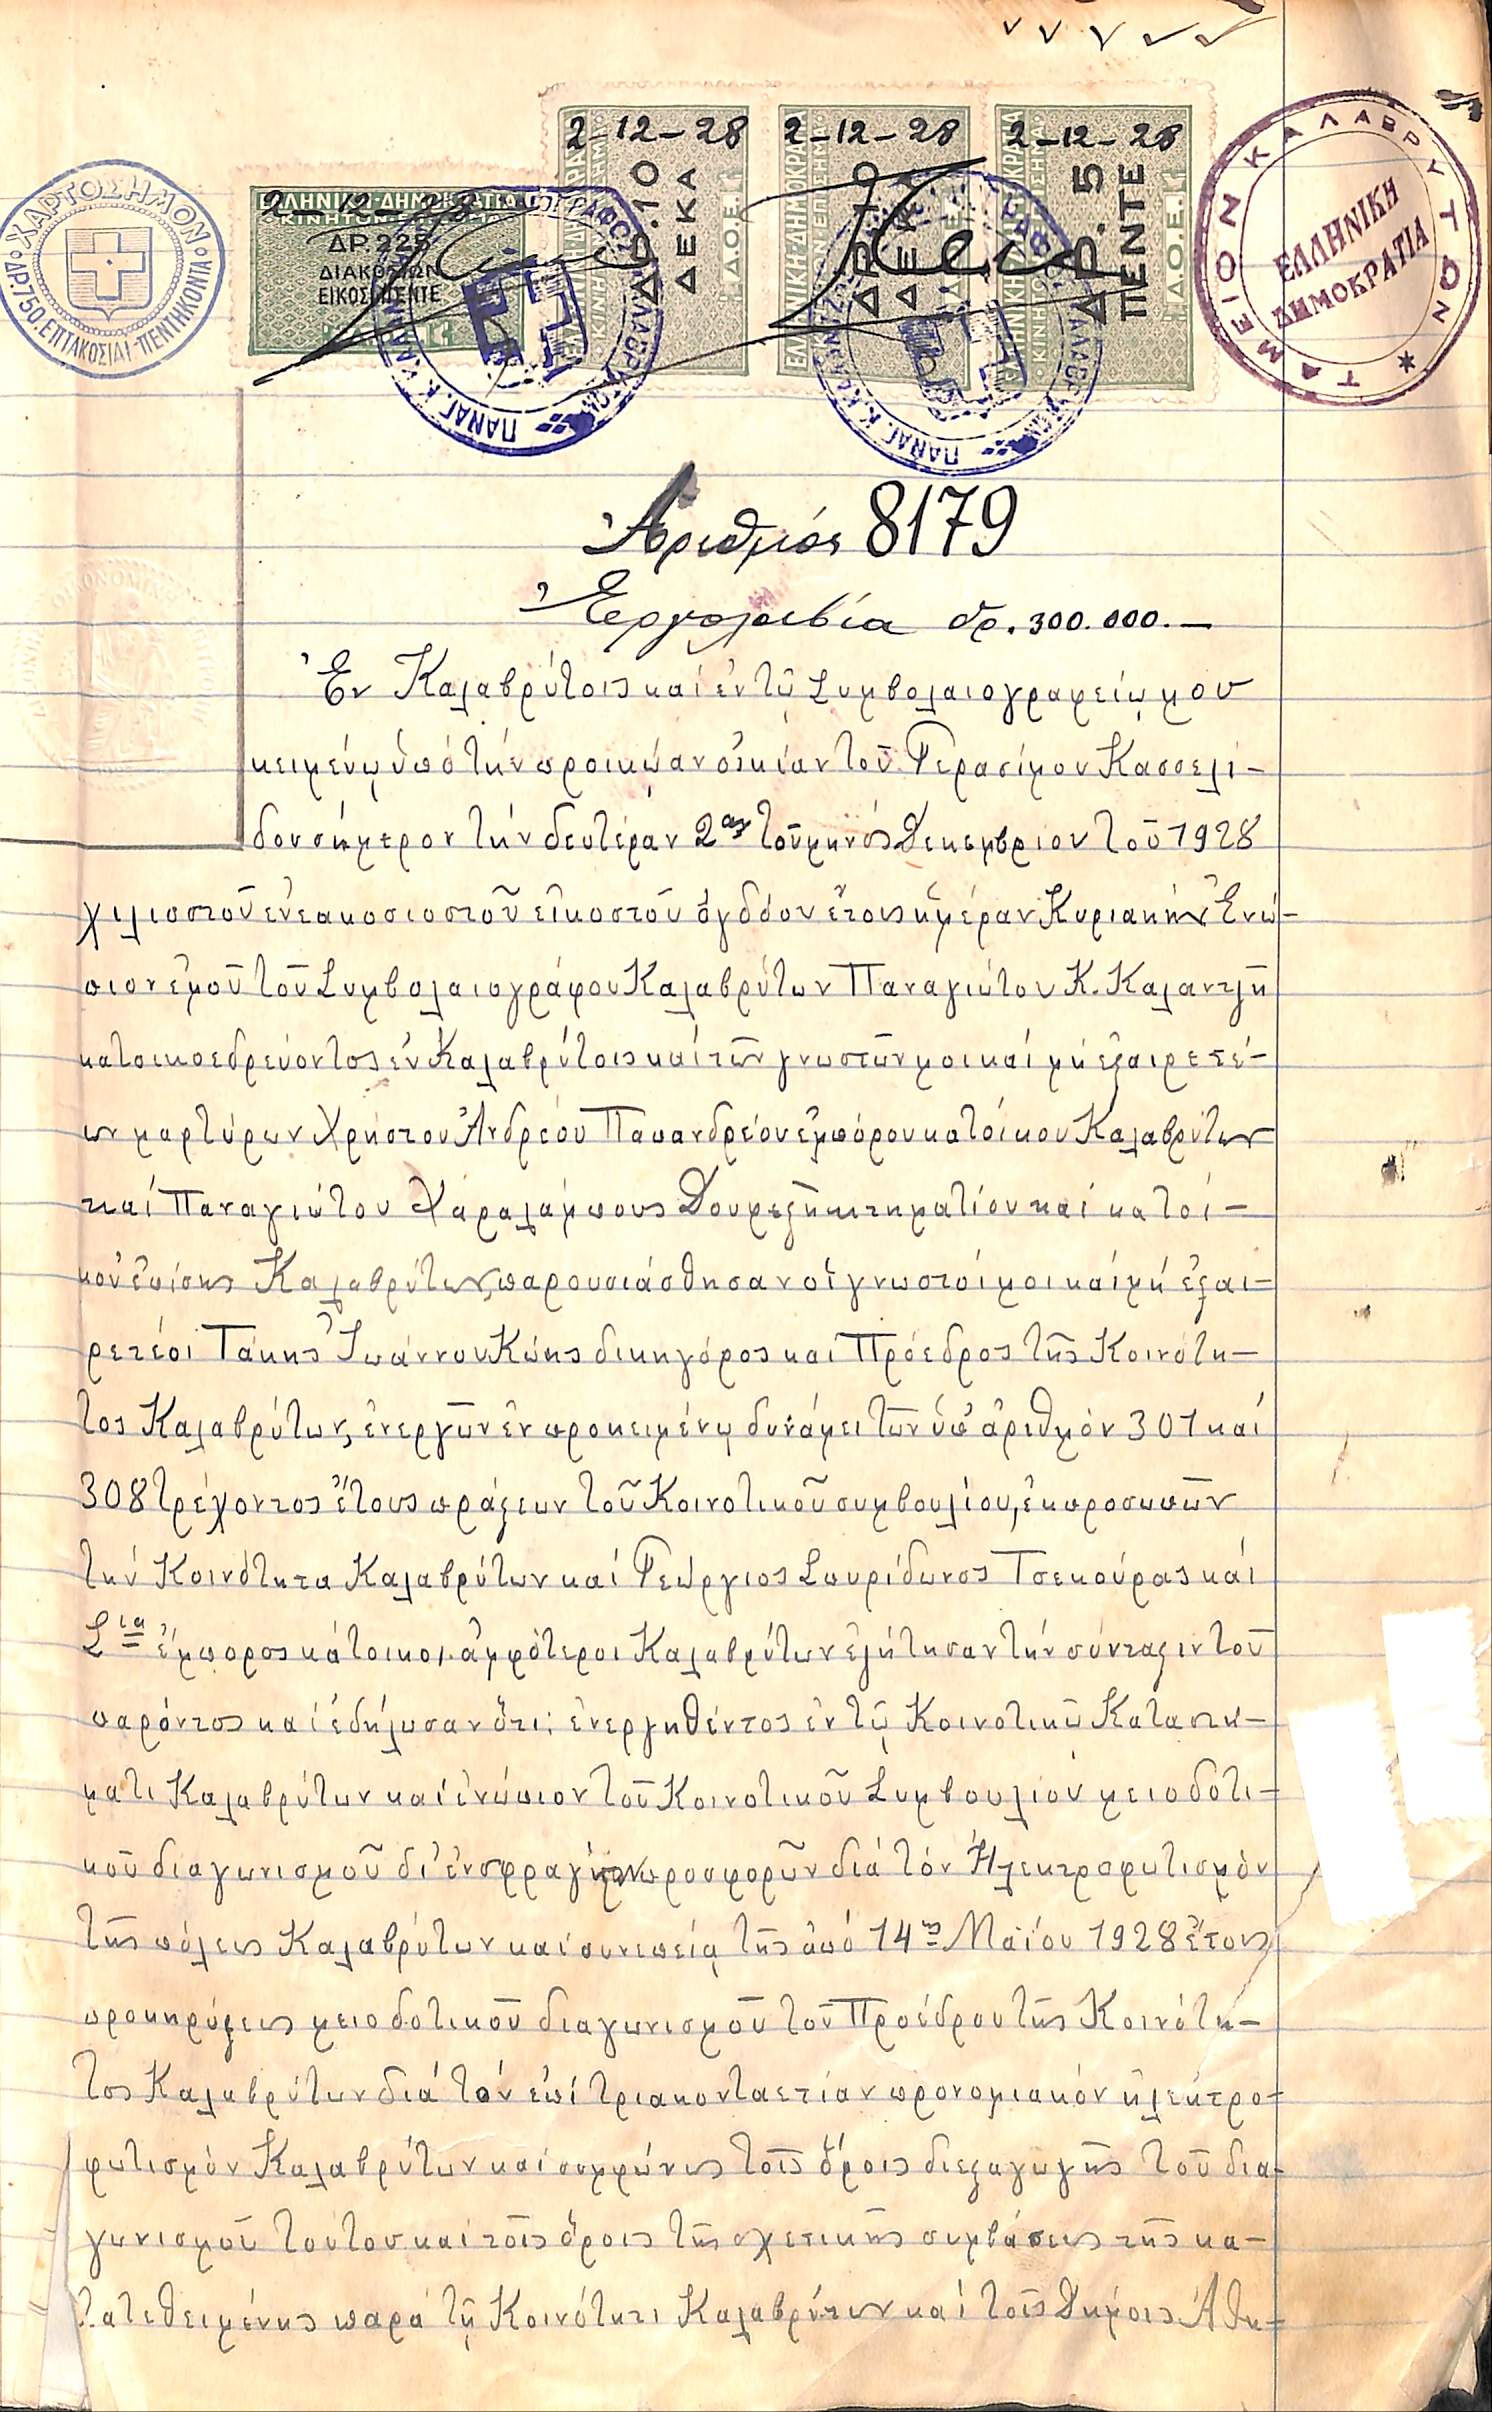 ΧΑΡΤΟΣΗΜΟΝ
ΔΡ.750.ΕΠΤΑΚΟΣΙΑΙ-ΠΕΝΤΗΚΟΝΤΑ
ΕΛΛΗΝΙΚΗ·ΔΗΜΟΚΡΑΤΙΑ
ΚΙΝΗΤΟΝ ΕΠΙΣΗΜΑ
2-12-28
ΔΡ.225
ΔΙΑΚΟΣΙΩΝ
ΕΙΚΟΣΙΠΕΝΤΕ
2-12-28
ΔΡ.10
ΔΕΚΑ
2-12-28
ΔΡ.10
ΔΕΚΑ
2-12-28
ΔΡ.5
ΠΕΝΤΕ
ΤΑΜΕΙΟΝ ΚΑΛΑΒΡΥΤΩΝ
ΕΛΛΗΝΙΚΗ
ΔΗΜΟΚΡΑΤΙΑ
Ἀριθμός 8179
Ἐργολαβία δρ. 300.000.—
Ἐν Καλαβρύτοις καί ἐν τῷ Συμβολαιογραφείῳ μου
κειμένῳ ὑπό τήν προικῴαν οἰκίαν τοῦ Γερασίμου Κασσελί-
δου σήμερον τήν δευτέραν 2αν τοῦ μηνός Δεκεμβρίου τοῦ 1928
χιλιοστοῦ ἐνεακοσιοστοῦ εἰκοστοῦ ὀγδόου ἔτους ἡμέραν Κυριακήν Ἐνώ-
πιον ἐμοῦ τοῦ Συμβολαιογράφου Καλαβρύτων Παναγιώτου Κ. Καλαντζῆ
κατοικοεδρεύοντος ἐν Καλαβρύτοις καί τῶν γνωστῶν μοι καί μή ἐξαιρετέ-
ων μαρτύρων Χρήστου Ἀνδρέου Παπανδρέου ἐμπόρου κατοίκου Καλαβρύτων
καί Παναγιώτου Χαραλάμπους κτηματίου καί κατοί-
κου ἐπίσης Καλαβρύτων, παρουσιάσθησαν οἱ γνωστοί μοι καί μή ἐξαι-
ρετέοι Τάκης Ἰωάννου Κώης δικηγόρος καί Πρόεδρος τῆς Κοινότη-
τος Καλαβρύτων, ἐνεργῶν ἐν προκειμένῳ δυνάμει τῶν ὑπ' ἀριθμόν 301 καί
308 τρέχοντος ἔτους πράξεων τοῦ Κοινοτικοῦ συμβουλίου, ἐκπροσωπῶν
τήν Κοινότητα Καλαβρύτων καί Γεώργιος Σπυρίδωνος Τσεκούρας καί
Σια ἔμπορος κάτοικοι ἀμφότεροι Καλαβρύτων ἐζήτησαν τήν σύνταξιν τοῦ
παρόντος καί ἐδήλωσαν ὅτι: ἐνεργηθέντος ἐν τῷ Κοινοτικῷ Καταστή-
ματι Καλαβρύτων καί ἐνώπιον τοῦ Κοινοτικοῦ Συμβουλίου μειοδοτι-
κοῦ διαγωνισμοῦ δι' ἐνσφραγίστων προσφορῶν διά τόν Ἠλεκτροφωτισμόν
τῆς πόλεως Καλαβρύτων καί συνεπείᾳ τῆς ἀπό 14ης Μαΐου 1928 ἔτους
προκηρύξεως μειοδοτικοῦ διαγωνισμοῦ τοῦ Προέδρου τῆς Κοινότη-
τος Καλαβρύτων διά τόν ἐπί τριακονταετίαν προνομιακόν ἠλεκτρο-
φωτισμόν Καλαβρύτων καί συμφώνως τοῖς ὅροις διεξαγωγῆς τοῦ δια-
γωνισμοῦ τούτου καί τοῖς ὅροις τῆς σχετικῆς συμβάσεως τῆς κα-
τατεθειμένης παρά τῇ Κοινότητι Καλαβρύτων καί τοῖς Δήμοις Ἀθη-